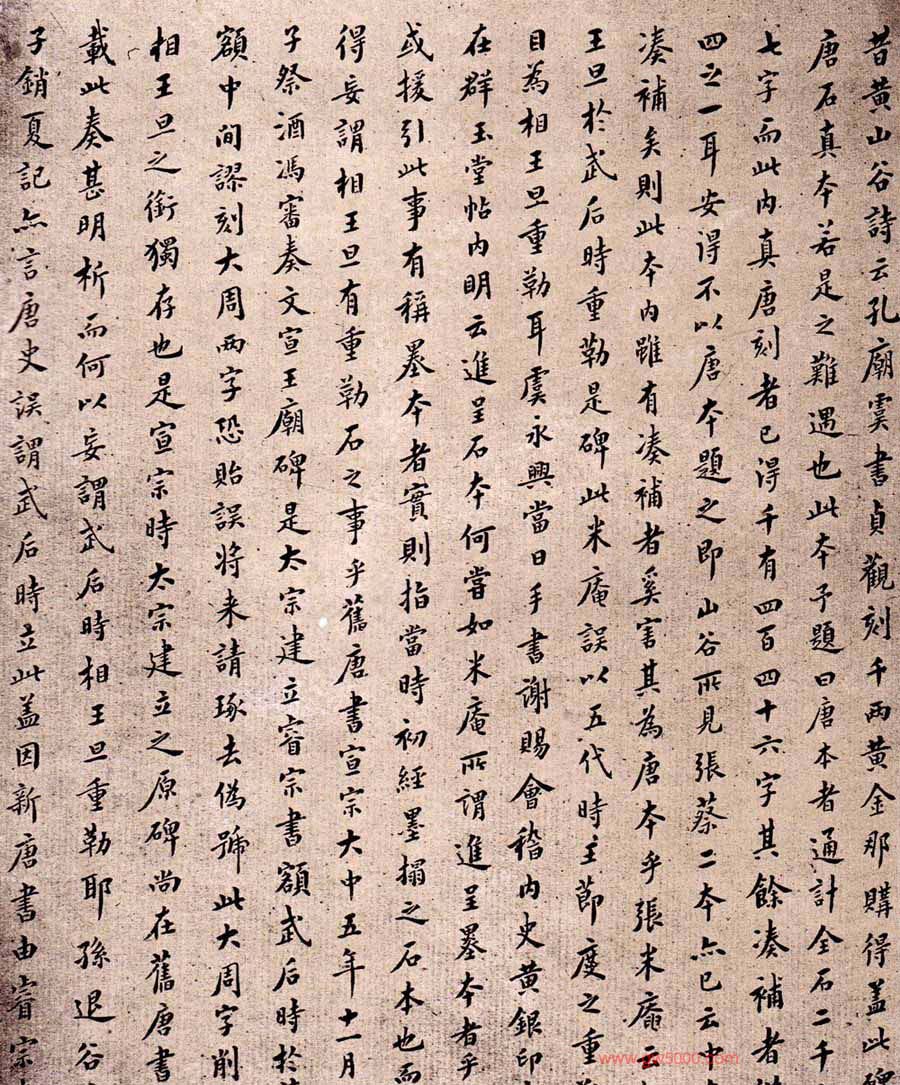 昔黄山谷詩云孔廟虞書貞觀刻千兩黄金那購得盖此碑
唐石真本若是之難遇也此本予題曰唐本者通計全石二千
七字而此内真唐刻者已得千有四百四十六字其餘凑補者
四之一耳安得不以唐本題之即山谷所見張蔡二本亦已云中
凑補矣則此本内雖有凑補者奚害其為唐本乎張米庵云
王旦於武后時重勒是碑此米庵誤以五代時主節度之重
目為相王旦重勒耳虞永興當日手書謝賜會稽内史黄銀印
在群玉堂帖内明云進呈石本何嘗如米庵所謂進呈墨本者乎
或援引此事有稱墨本者實則指當時初經墨搨之石本也而
得妄謂相王旦有重勒石之事乎舊唐書宣宗大中五年十一月
子祭酒馮審奏文宣王廟碑是太宗建立睿宗書額武后時於
額中間謬刻大周兩字恐貽誤将来請琢去偽號此大周字削
相王旦之銜獨存也是宣宗時太宗建立之原碑尚在舊唐書
載此奏甚明析而何以妄謂武后時相王旦重勒耶孫退谷
子銷夏記亦言唐史誤謂武后時立此盖因新唐書由睿宗
www.yw5000.com